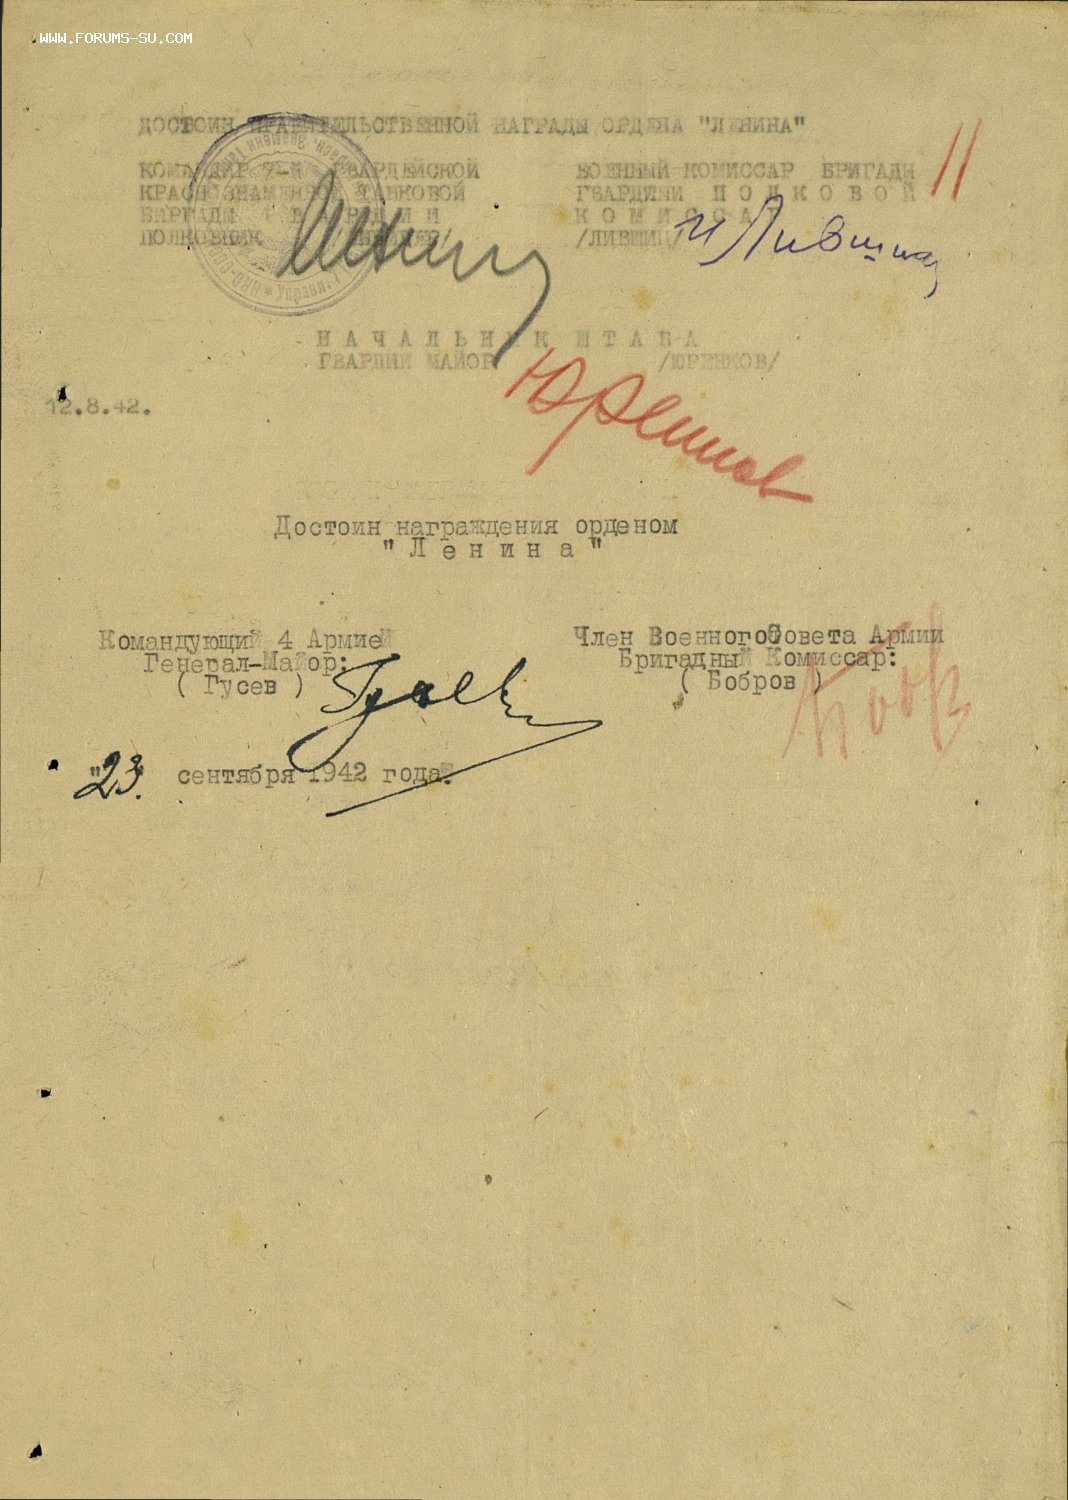 WWW.FORUMS-SU.COM
11
ДОСТОИН ПРАВИТЕЛЬСТВЕННОЙ НАГРАДЫ ОРДЕНА "ЛЕНИНА"
КОМАНДИР 7-й ГВАРДЕЙСКОЙ
КРАСНОЗНАМЕННОЙ ТАНКОВОЙ
ПОЛКОВНИК
ВОЕННЫЙ КОМИССАР БРИГАДЫ
ГВАРДИИ ПОЛКОВОЙ
КОМИССАР
/ЛИВШИЦ/
и Лившиц
НАЧАЛЬНИК ШТАБА
ГВАРДИИ МАЙОР /ЮРЕНКОВ/
12.8.42.
Достоин награждения орденом
"Ленина"
Командующий 4 Армией
Генерал-Майор:
( Гусев )
Гусев
Член Военного Совета Армии
Бригадный Комиссар:
( Бобров )
Бобр
"23" сентября 1942 года.